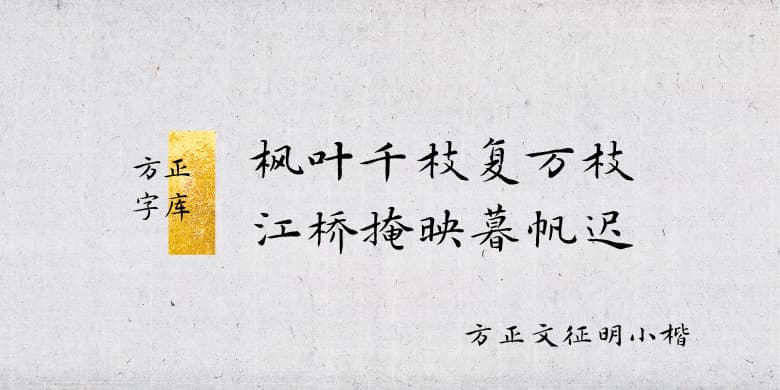 方正
字库
枫叶千枝复万枝
江桥掩映暮帆迟
方正文征明小楷